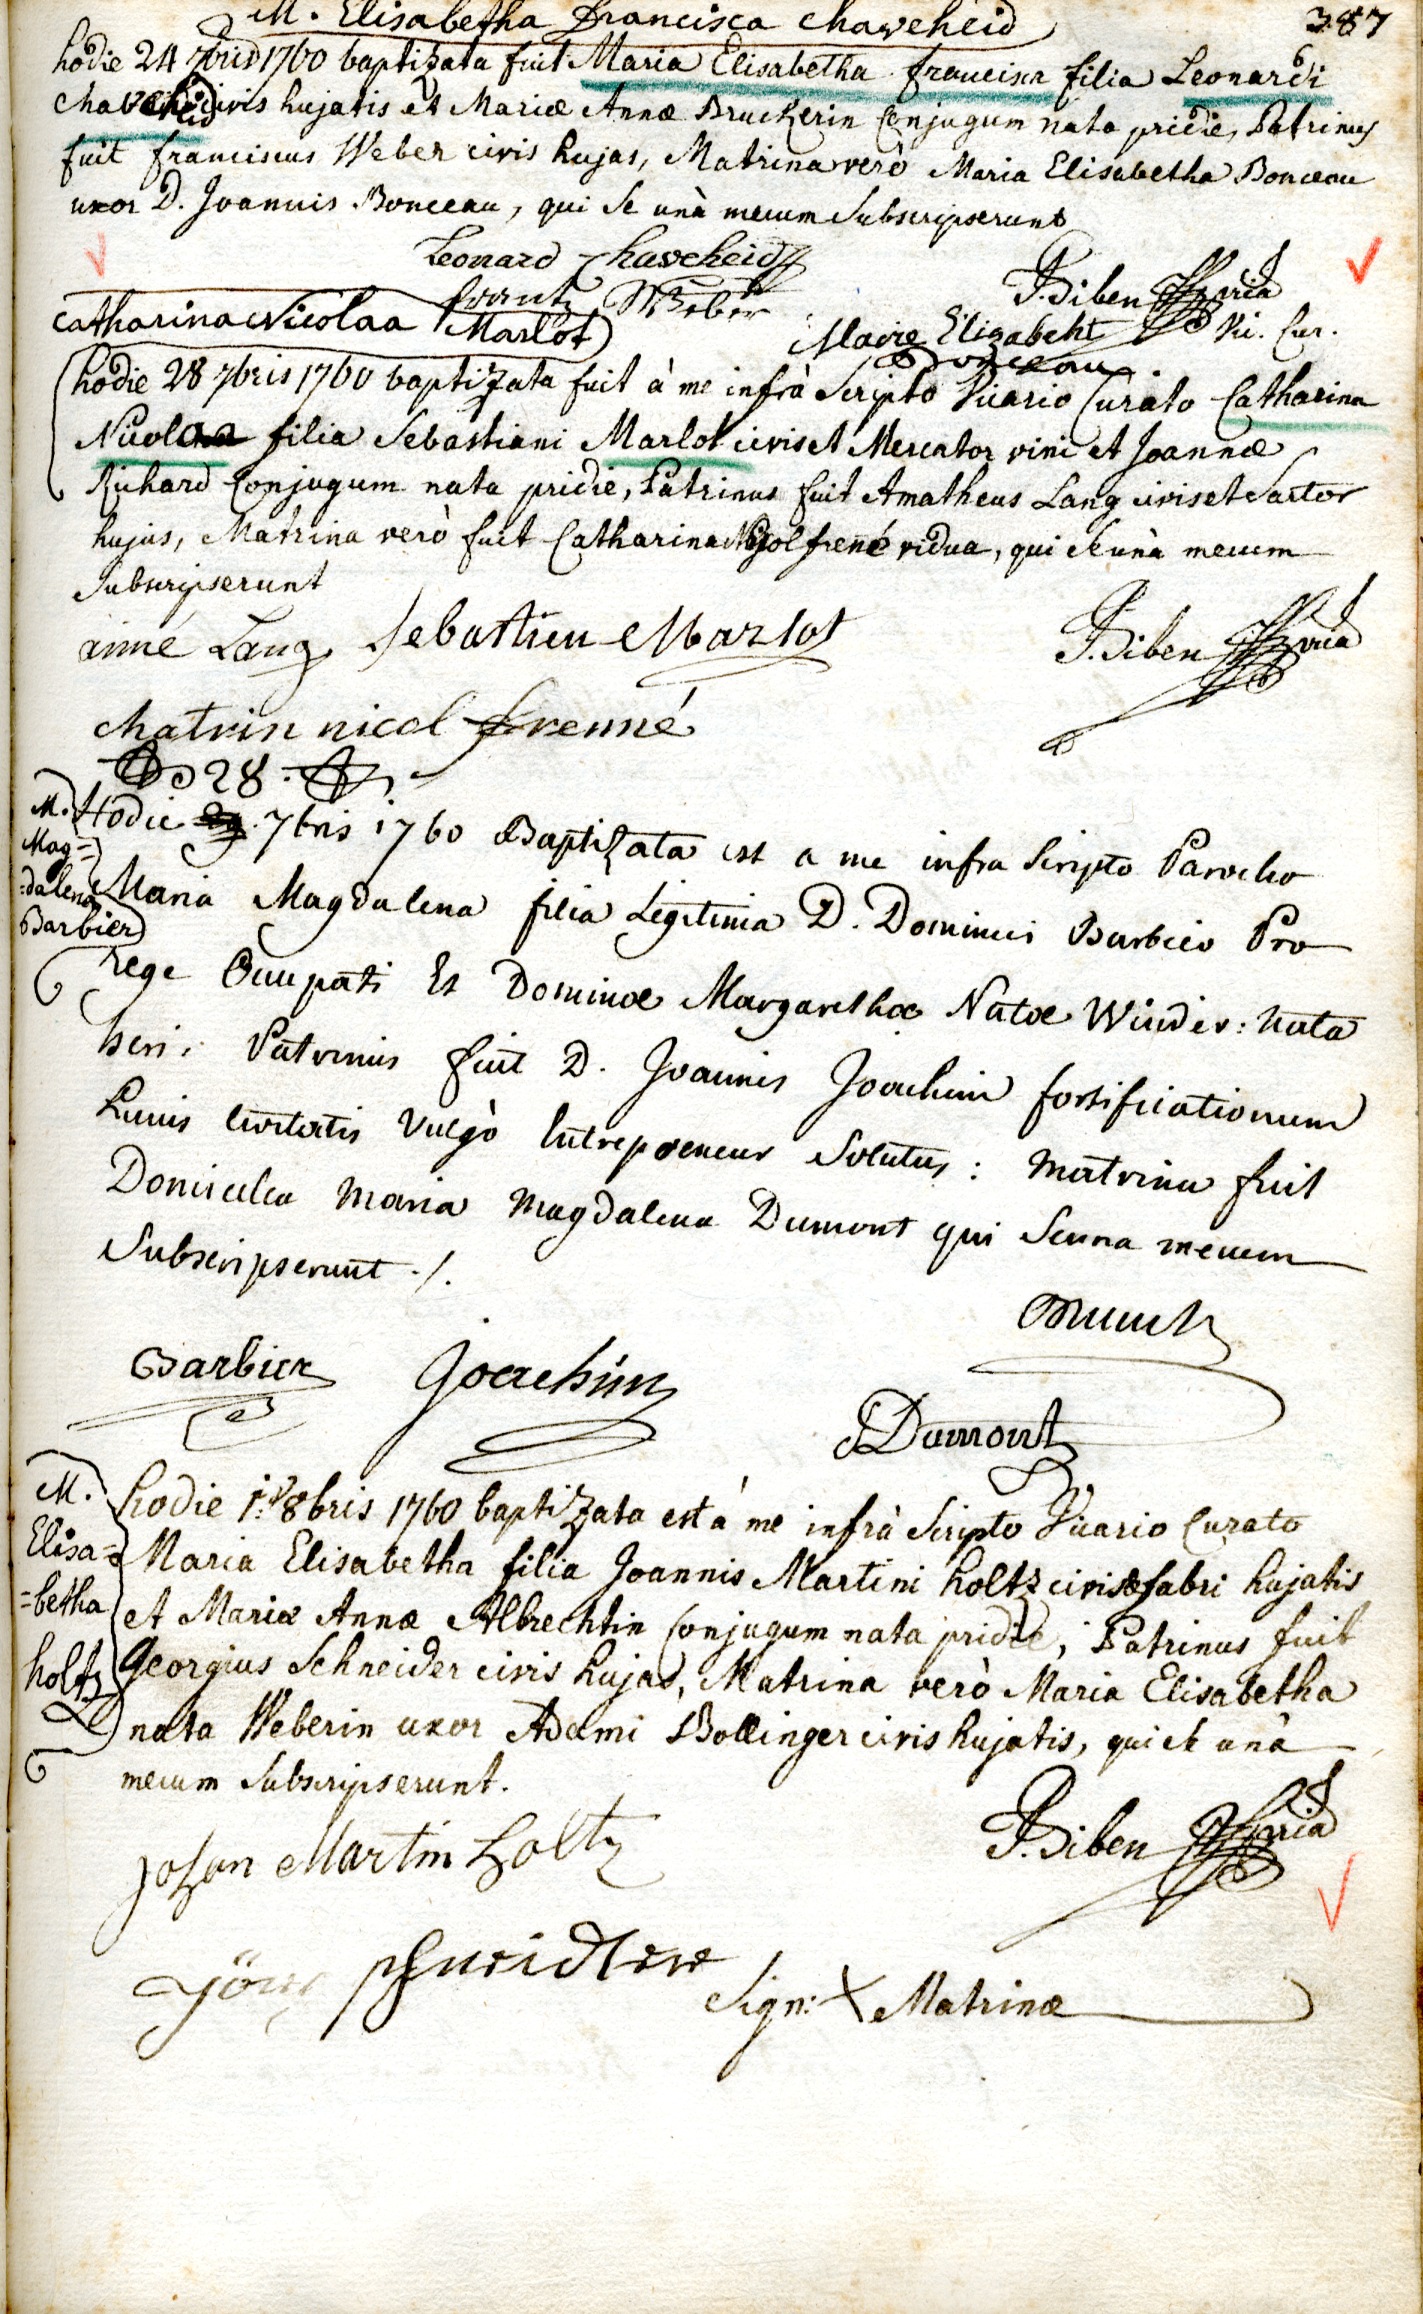 M. Elisabetha Francisca Chaveheid
387
hodie 24 7bris 1760 baptizata fuit Maria Elisabetha francisca filia Leonardi
Chaveheid civis hujatis et Mariæ Annæ Bruckerin Conjugum nata pridie, Patrinus
fuit franciscus Weber civis hujas, Matrina verò Maria Elisabetha Bonceau
uxor D. Joannis Bonceau, qui se unà mecum Subscripserunt
Leonard Chaveheid
frantz Weber
P. Biben
Vic. Cur.
Marie Elizabeht
Bonceau
Catharina Nicolaa
Marlot
hodie 28 7bris 1760 baptizata fuit à me infrà Scripto Vicario Curato Catharina
Nicolaa filia Sebastiani Marlot civis et Mercator vini et Joannæ
Richard Conjugum nata pridie, Patrinus fuit Amatheus Lang civis et Sartor
hujus, Matrina verò fuit Catharina Nicol frené vidua, qui se unà mecum
Subscripserunt
aimé Lang Sebastien Marlot
P. Biben
Chatrin nicol frenné
28.
M.
Mag=
=dalena
Barbier
Hodie 7bris 1760 Baptizata est a me infra Scripto Parocho
Maria Magdalena filia Legitima D. Dominici Barbier Pro
rege Occupati Et Dominæ Margarethæ Natæ Winder: Nata
heri; Patrinus fuit D. Joannis Joachim fortificationum
hujus Civitatis Vulgò Entrepreneur Solutus: Matrina fuit
Domicella Maria Magdalena Dumont qui Seuna mecum
Subscripserunt ./.
Barbier Joachim
Dumont
M.
Elisa=
=betha
holtz
hodie 1. 8bris 1760 baptizata est á me infrà Scripto Vicario Curato
Maria Elisabetha filia Joannis Martini holtz civis et fabri hujatis
et Mariæ Annæ Albrechtin Conjugum nata pridie; Patrinus fuit
Georgius Schneider civis hujas, Matrina verò Maria Elisabetha
nata Weberin uxor Adami Bollinger civis hujatis, qui se unà
mecum Subscripserunt.
P. Biben
Johan Martin Holtz
Jörg Schneidter
Sign: X Matrinæ